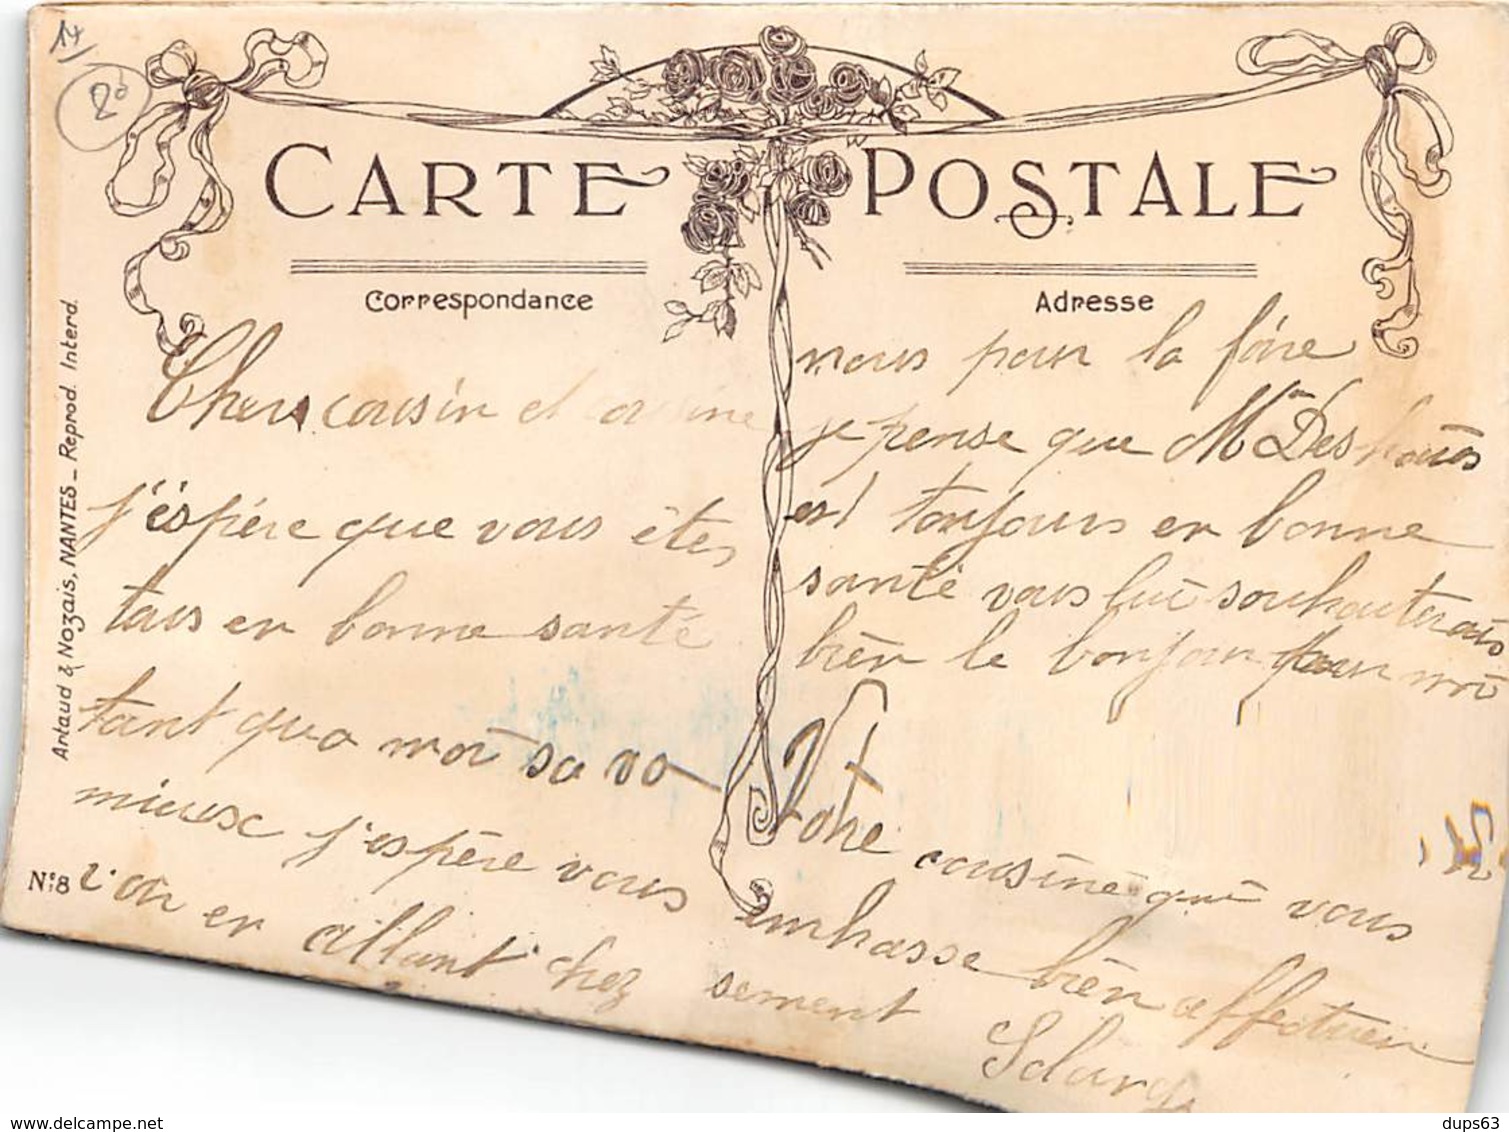 14
CARTE POSTALE
Correspondance
Adresse
Artaud & Nozais, NANTES _ Reprod. Interd.
N°8
Chers cousin et cousine
j'éspére que vous êtes
tous en bonne santé
tant qua moi sa va
mieux j'espère vous
l'on en allant chez
nous pour la foire
je pense que Mme Deshaies
est toujours en bonne
santé vous lui souhaiterais
bien le bonjour pour moi
Votre cousine qui vous
embrasse bien affectueu
sement
delcampe.net
dups63